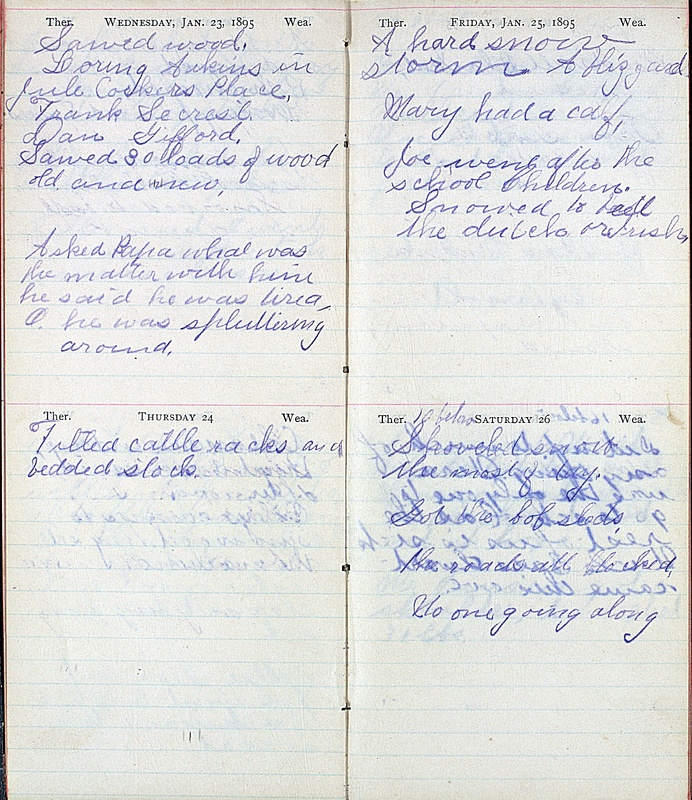 Ther. WEDNESDAY, JAN. 23, 1895 Wea.
Sawed wood.
Loring Askins in
Jule Cockers Place,
Frank Secrest.
Dan Gifford.
Sawed 30 loads of wood
old and new,
Asked Papa what was
the matter with him
he said he was tired,
O. he was spluttering
around.
Ther. THURSDAY 24 Wea.
Filled cattle racks and
bedded stock.
Ther. FRIDAY, JAN. 25, 1895 Wea.
A hard snow
storm A Blizzard
Mary had a calf.
Joe went after the
school Children.
Snowed to beat
the dutch or Irish,
Ther. 10 below SATURDAY 26 Wea.
Shoveled snow
the most of day.
Got the bob sleds
the roads all blocked,
No one going along